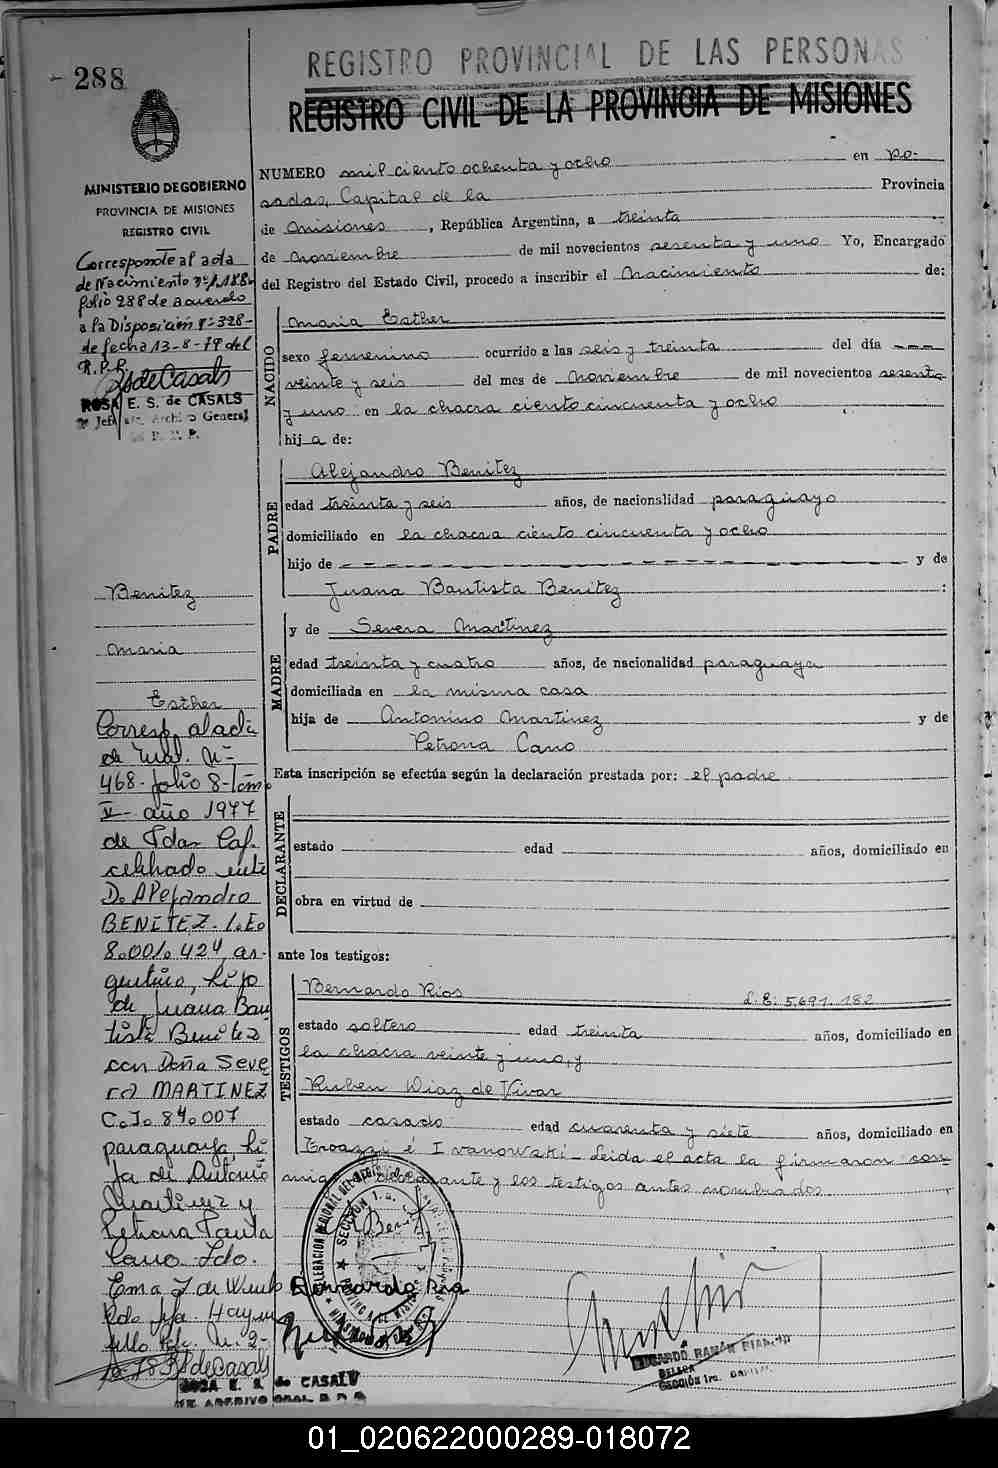 - 288
REGISTRO PROVINCIAL DE LAS PERSONAS
REGISTRO CIVIL DE LA PROVINCIA DE MISIONES
MINISTERIO DE GOBIERNO
PROVINCIA DE MISIONES
REGISTRO CIVIL
Corresponde al acta
de Nacimiento nº 1.188-
folio 288 de acuerdo
a la Disposición nº 328-
de fecha 13-8-79 del
R.P.P.
RSdeCasals
ROSA E. S. de CASALS
Archivo General
NUMERO mil ciento ochenta y ocho en Po-
sadas, Capital de la Provincia
de Misiones, República Argentina, a treinta
de Noviembre de mil novecientos sesenta y uno Yo, Encargado
del Registro del Estado Civil, procedo a inscribir el Nacimiento de:
NACIDO
Maria Esther
sexo femenino ocurrido a las seis y treinta del día ---
veinte y seis del mes de Noviembre de mil novecientos sesenta
y uno en la chacra ciento cincuenta y ocho
hija de:
PADRE
Alejandro Benitez
edad treinta y seis años, de nacionalidad paraguayo
domiciliado en la chacra ciento cincuenta y ocho
hijo de - - - - - - - - - - - - - - - - y de
Juana Bautista Benitez :
MADRE
y de Severa Martinez
edad treinta y cuatro años, de nacionalidad paraguaya
domiciliada en la misma casa
hija de Antonino Martinez y de
Petrona Cano
Esta inscripción se efectúa según la declaración prestada por: el padre.
DECLARANTE
estado edad años, domiciliado en
obra en virtud de
ante los testigos:
TESTIGOS
Bernardo Rios L.E: 5.691.182
estado soltero edad treinta años, domiciliado en
la chacra veinte y uno, y
Ruben Diaz de Vivar
estado casado edad cuarenta y siete años, domiciliado en
Troazzi é Ivanowski - Leida el acta la firmaron con-
migo el declarante y los testigos antes nombrados.
Benitez
Maria
Esther
Corresp. al acta
de Mat. Nº
468-folio 8-Tomo
V- año 1977
de Pdas Cap.
celebrado entre
Dº Alejandro
BENITEZ. I.Eº
8.001.424, ar-
gentino, hijo
de Juana Bau
tista Benitez
con Doña Seve
ra MARTINEZ
C.I. 84.007
paraguaya, hi
ja de Antonio
Martinez y
Petrona
Cano Fdo.
Ema
RSdeCasals
ROSA E. S. de CASALS
DELEGACION REGIONAL DEL REGISTRO
SECCION 1a.
PROVINCIA DE MISIONES
Benitez
Bernardo Rios
EDUARDO RAMÓN
SECCIÓN 1ra.
01_020622000289-018072